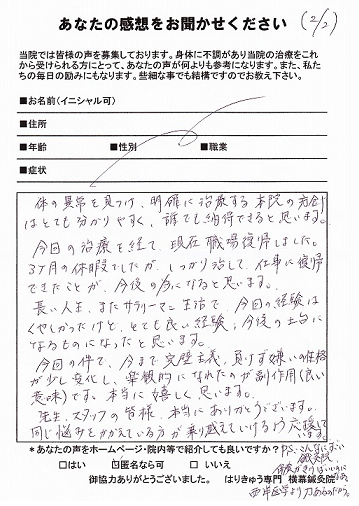 あなたの感想をお聞かせください (2/2)
当院では皆様の声を募集しております。身体に不調があり当院の治療をこれ
から受けられる方にとって、あなたの声が何よりも参考になります。また、私た
ちの毎日の励みにもなります。些細な事でも結構ですのでお教え下さい。
■お名前(イニシャル可)
■住所
■年齢 ■性別 ■職業
■症状
体の異常を見つけ、明確に治療する本院の方針
はとても分かりやすく、誰でも納得できると思います。
今回の治療を経て、現在職場復帰しました。
3ケ月の休暇でしたが、しっかり治して、仕事に復帰
できたことが、今後の為になると思います。
長い人生、またサラリーマン生活で、今回の経験は
くやしかったけど、とても良い経験、今後の土台に
なるものになったと思います。
今回の件で、今まで完璧主義、負けず嫌いの性格
が少し変化し、楽観的になれたのが副作用(良い
意味)です。本当に嬉しく思います。
先生、スタッフの皆様、本当にありがとうございます。
同じ悩みをかかえている方が乗り越えていけるよう応援して
います。
*あなたの声をホームページ・院内等で紹介しても良いですか?
□はい ☑匿名なら可 □いいえ
御協力ありがとうございました。 はりきゅう専門 横幕鍼灸院
P.S.
鍼灸院
西洋医学より